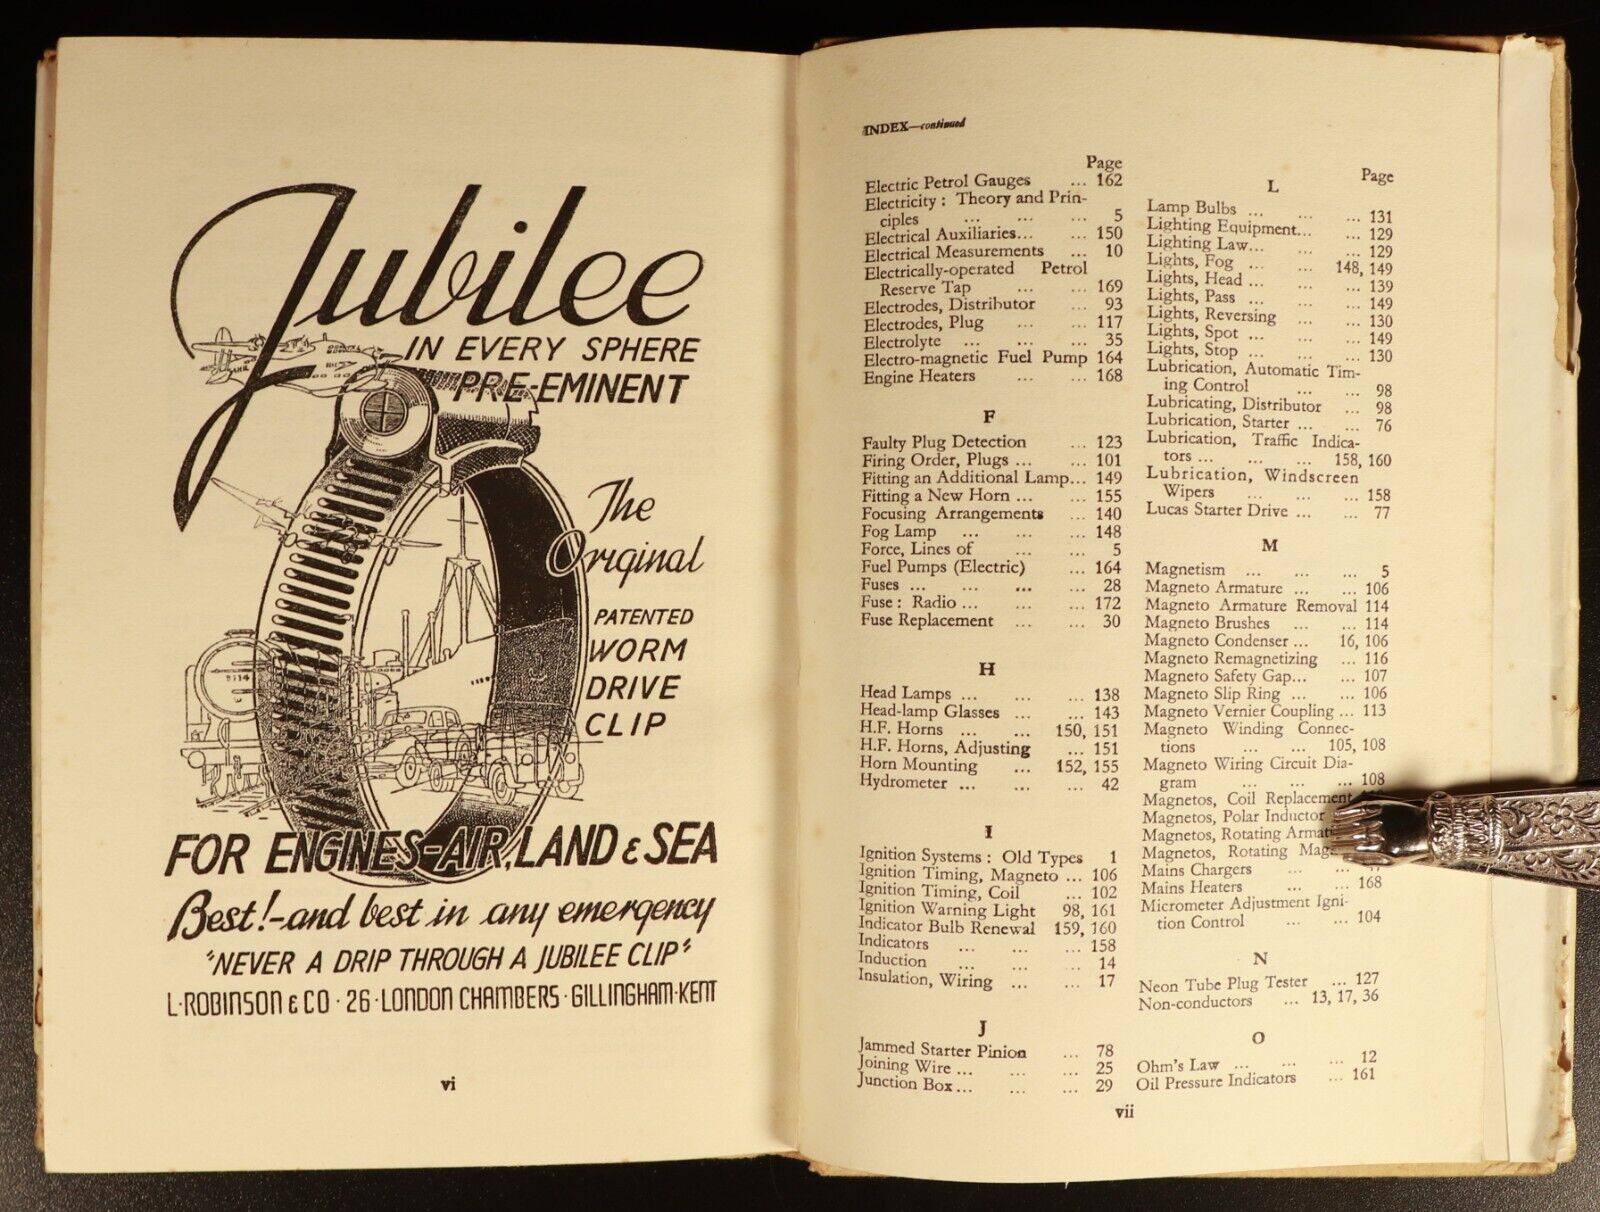 Jubilee
IN EVERY SPHERE
PRE-EMINENT
The
Original
PATENTED
WORM
DRIVE
CLIP
FOR ENGINES-AIR, LAND & SEA
Best!-and best in any emergency
"NEVER A DRIP THROUGH A JUBILEE CLIP"
L·ROBINSON & CO · 26 · LONDON CHAMBERS · GILLINGHAM·KENT
vi
INDEX—continued
Page
Electric Petrol Gauges ... 162
Electricity : Theory and Prin-
ciples ... ... ... 5
Electrical Auxiliaries... ... 150
Electrical Measurements ... 10
Electrically-operated Petrol
Reserve Tap ... ... 169
Electrodes, Distributor ... 93
Electrodes, Plug ... ... 117
Electrolyte ... ... ... 35
Electro-magnetic Fuel Pump 164
Engine Heaters ... ... 168
F
Faulty Plug Detection ... 123
Firing Order, Plugs ... ... 101
Fitting an Additional Lamp... 149
Fitting a New Horn ... ... 155
Focusing Arrangements ... 140
Fog Lamp ... ... ... 148
Force, Lines of ... ... 5
Fuel Pumps (Electric) ... 164
Fuses ... ... ... ... 28
Fuse : Radio ... ... ... 172
Fuse Replacement ... ... 30
H
Head Lamps ... ... ... 138
Head-lamp Glasses ... ... 143
H.F. Horns ... ... 150, 151
H.F. Horns, Adjusting ... 151
Horn Mounting ... 152, 155
Hydrometer ... ... ... 42
I
Ignition Systems : Old Types 1
Ignition Timing, Magneto ... 106
Ignition Timing, Coil ... 102
Ignition Warning Light 98, 161
Indicator Bulb Renewal 159, 160
Indicators ... ... ... 158
Induction ... ... ... 14
Insulation, Wiring ... ... 17
J
Jammed Starter Pinion ... 78
Joining Wire ... ... ... 25
Junction Box... ... ... 29
Page
L
Lamp Bulbs ... ... ... 131
Lighting Equipment... ... 129
Lighting Law... ... ... 129
Lights, Fog ... ... 148, 149
Lights, Head ... ... ... 139
Lights, Pass ... ... ... 149
Lights, Reversing ... ... 130
Lights, Spot ... ... ... 149
Lights, Stop ... ... ... 130
Lubrication, Automatic Tim-
ing Control ... ... 98
Lubricating, Distributor ... 98
Lubrication, Starter ... ... 76
Lubrication, Traffic Indica-
tors ... ... ... 158, 160
Lubrication, Windscreen
Wipers ... ... ... 158
Lucas Starter Drive ... ... 77
M
Magnetism ... ... ... 5
Magneto Armature ... ... 106
Magneto Armature Removal 114
Magneto Brushes ... ... 114
Magneto Condenser ... 16, 106
Magneto Remagnetizing ... 116
Magneto Safety Gap... ... 107
Magneto Slip Ring ... ... 106
Magneto Vernier Coupling ... 113
Magneto Winding Connec-
tions ... ... 105, 108
Magneto Wiring Circuit Dia-
gram ... ... ... 108
Magnetos, Coil Replacement
Magnetos, Polar Inductor
Magnetos, Rotating
Magnetos, Rotating
Mains Chargers ...
Mains Heaters ... ... 168
Micrometer Adjustment Igni-
tion Control ... ... 104
N
Neon Tube Plug Tester ... 127
Non-conductors ... 13, 17, 36
O
Ohm's Law ... ... ... 12
Oil Pressure Indicators ... 161
vii